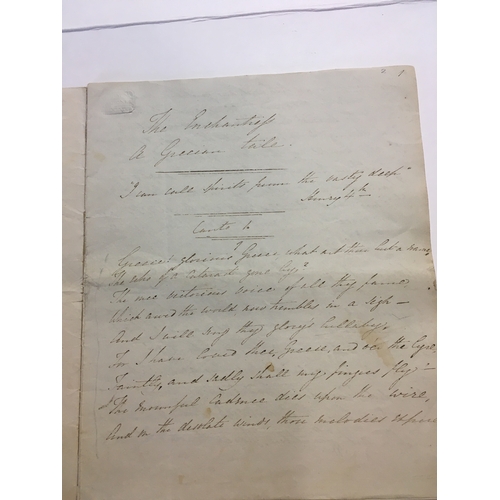 2 1
The Enchantress
A Grecian tale.
"I can call spirits from the vasty deep"
Henry 4th
Canto 1
Greece! glorious Greece what art thou but a name,
The echo of a
The once victorious voice of all thy fame
Which awed the world now trembles in a sigh—
And I will sing thy glory's lullaby,
For I have loved thee, Greece, and o'er the Lyre,
Faintly, and sadly shall my fingers fly—
The mournful Cadence dies upon the wire,
And on the desolate winds, those melodies expire